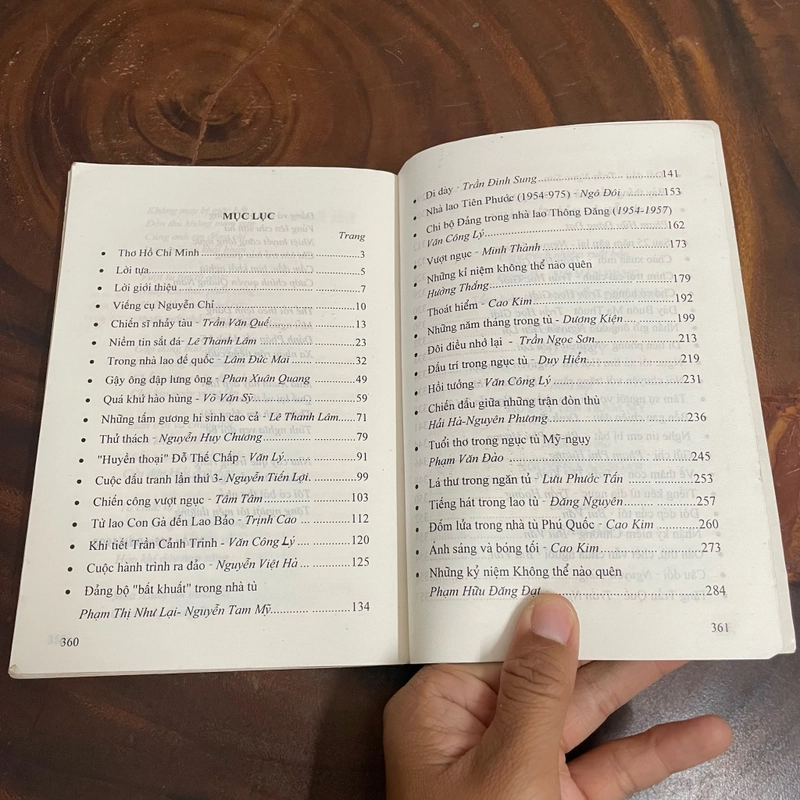 MỤC LỤC
Trang
• Thơ Hồ Chí Minh ........ 3
• Lời tựa ........ 5
• Lời giới thiệu ........ 7
• Viếng cụ Nguyễn Chỉ ........ 10
• Chiến sĩ nhảy tàu - Trần Văn Quế ........ 13
• Niềm tin sắt đá - Lê Thanh Lâm ........ 23
• Trong nhà lao đế quốc - Lâm Đức Mai ........ 32
• Gậy ông đập lưng ông - Phan Xuân Quang ........ 49
• Quá khứ hào hùng - Võ Văn Sỹ ........ 59
• Những tấm gương hi sinh cao cả - Lê Thanh Lâm ........ 71
• Thử thách - Nguyễn Huy Chương ........ 79
• "Huyền thoại" Đỗ Thế Chấp - Văn Lý ........ 91
• Cuộc đấu tranh lần thứ 3- Nguyễn Tiến Lợi ........ 99
• Chiến công vượt ngục - Tâm Tâm ........ 103
• Từ lao Con Gà đến Lao Bảo - Trịnh Cao ... ........ 112
• Khí tiết Trần Cảnh Trinh - Văn Công Lý ........ 120
• Cuộc hành trình ra đảo - Nguyễn Việt Hà ... ........ 125
• Đảng bộ "bất khuất" trong nhà tù
Phạm Thị Như Lại- Nguyễn Tam Mỹ ........ 134
360
• Đi đày - Trần Đình Sung ........ 141
• Nhà lao Tiên Phước (1954-975) - Ngô Đôi ........ 153
• Chi bộ Đảng trong nhà lao Thông Đăng (1954-1957)
Văn Công Lý ........ 162
• Vượt ngục - Minh Thành ........ 173
• Những kỉ niệm không thể nào quên
Hường Thắng ........ 179
• Thoát hiểm - Cao Kim ........ 192
• Những năm tháng trong tù - Dương Kiện ........ 199
• Đôi điều nhớ lại - Trần Ngọc Sơn ........ 213
• Đấu trí trong ngục tù - Duy Hiển ........ 219
• Hồi tưởng - Văn Công Lý ........ 231
• Chiến đấu giữa những trận đòn thù
Hải Hà-Nguyên Phương ........ 236
• Tuổi thơ trong ngục tù Mỹ-ngụy
Phạm Văn Đào ........ 245
• Lá thư trong ngăn tủ - Lưu Phước Tấn ........ 253
• Tiếng hát trong lao tù - Đăng Nguyên ........ 257
• Đốm lửa trong nhà tù Phú Quốc - Cao Kim ........ 260
• Ánh sáng và bóng tối - Cao Kim ........ 273
• Những kỷ niệm Không thể nào quên
Phạm Hữu Đăng Đạt ........ 284
361